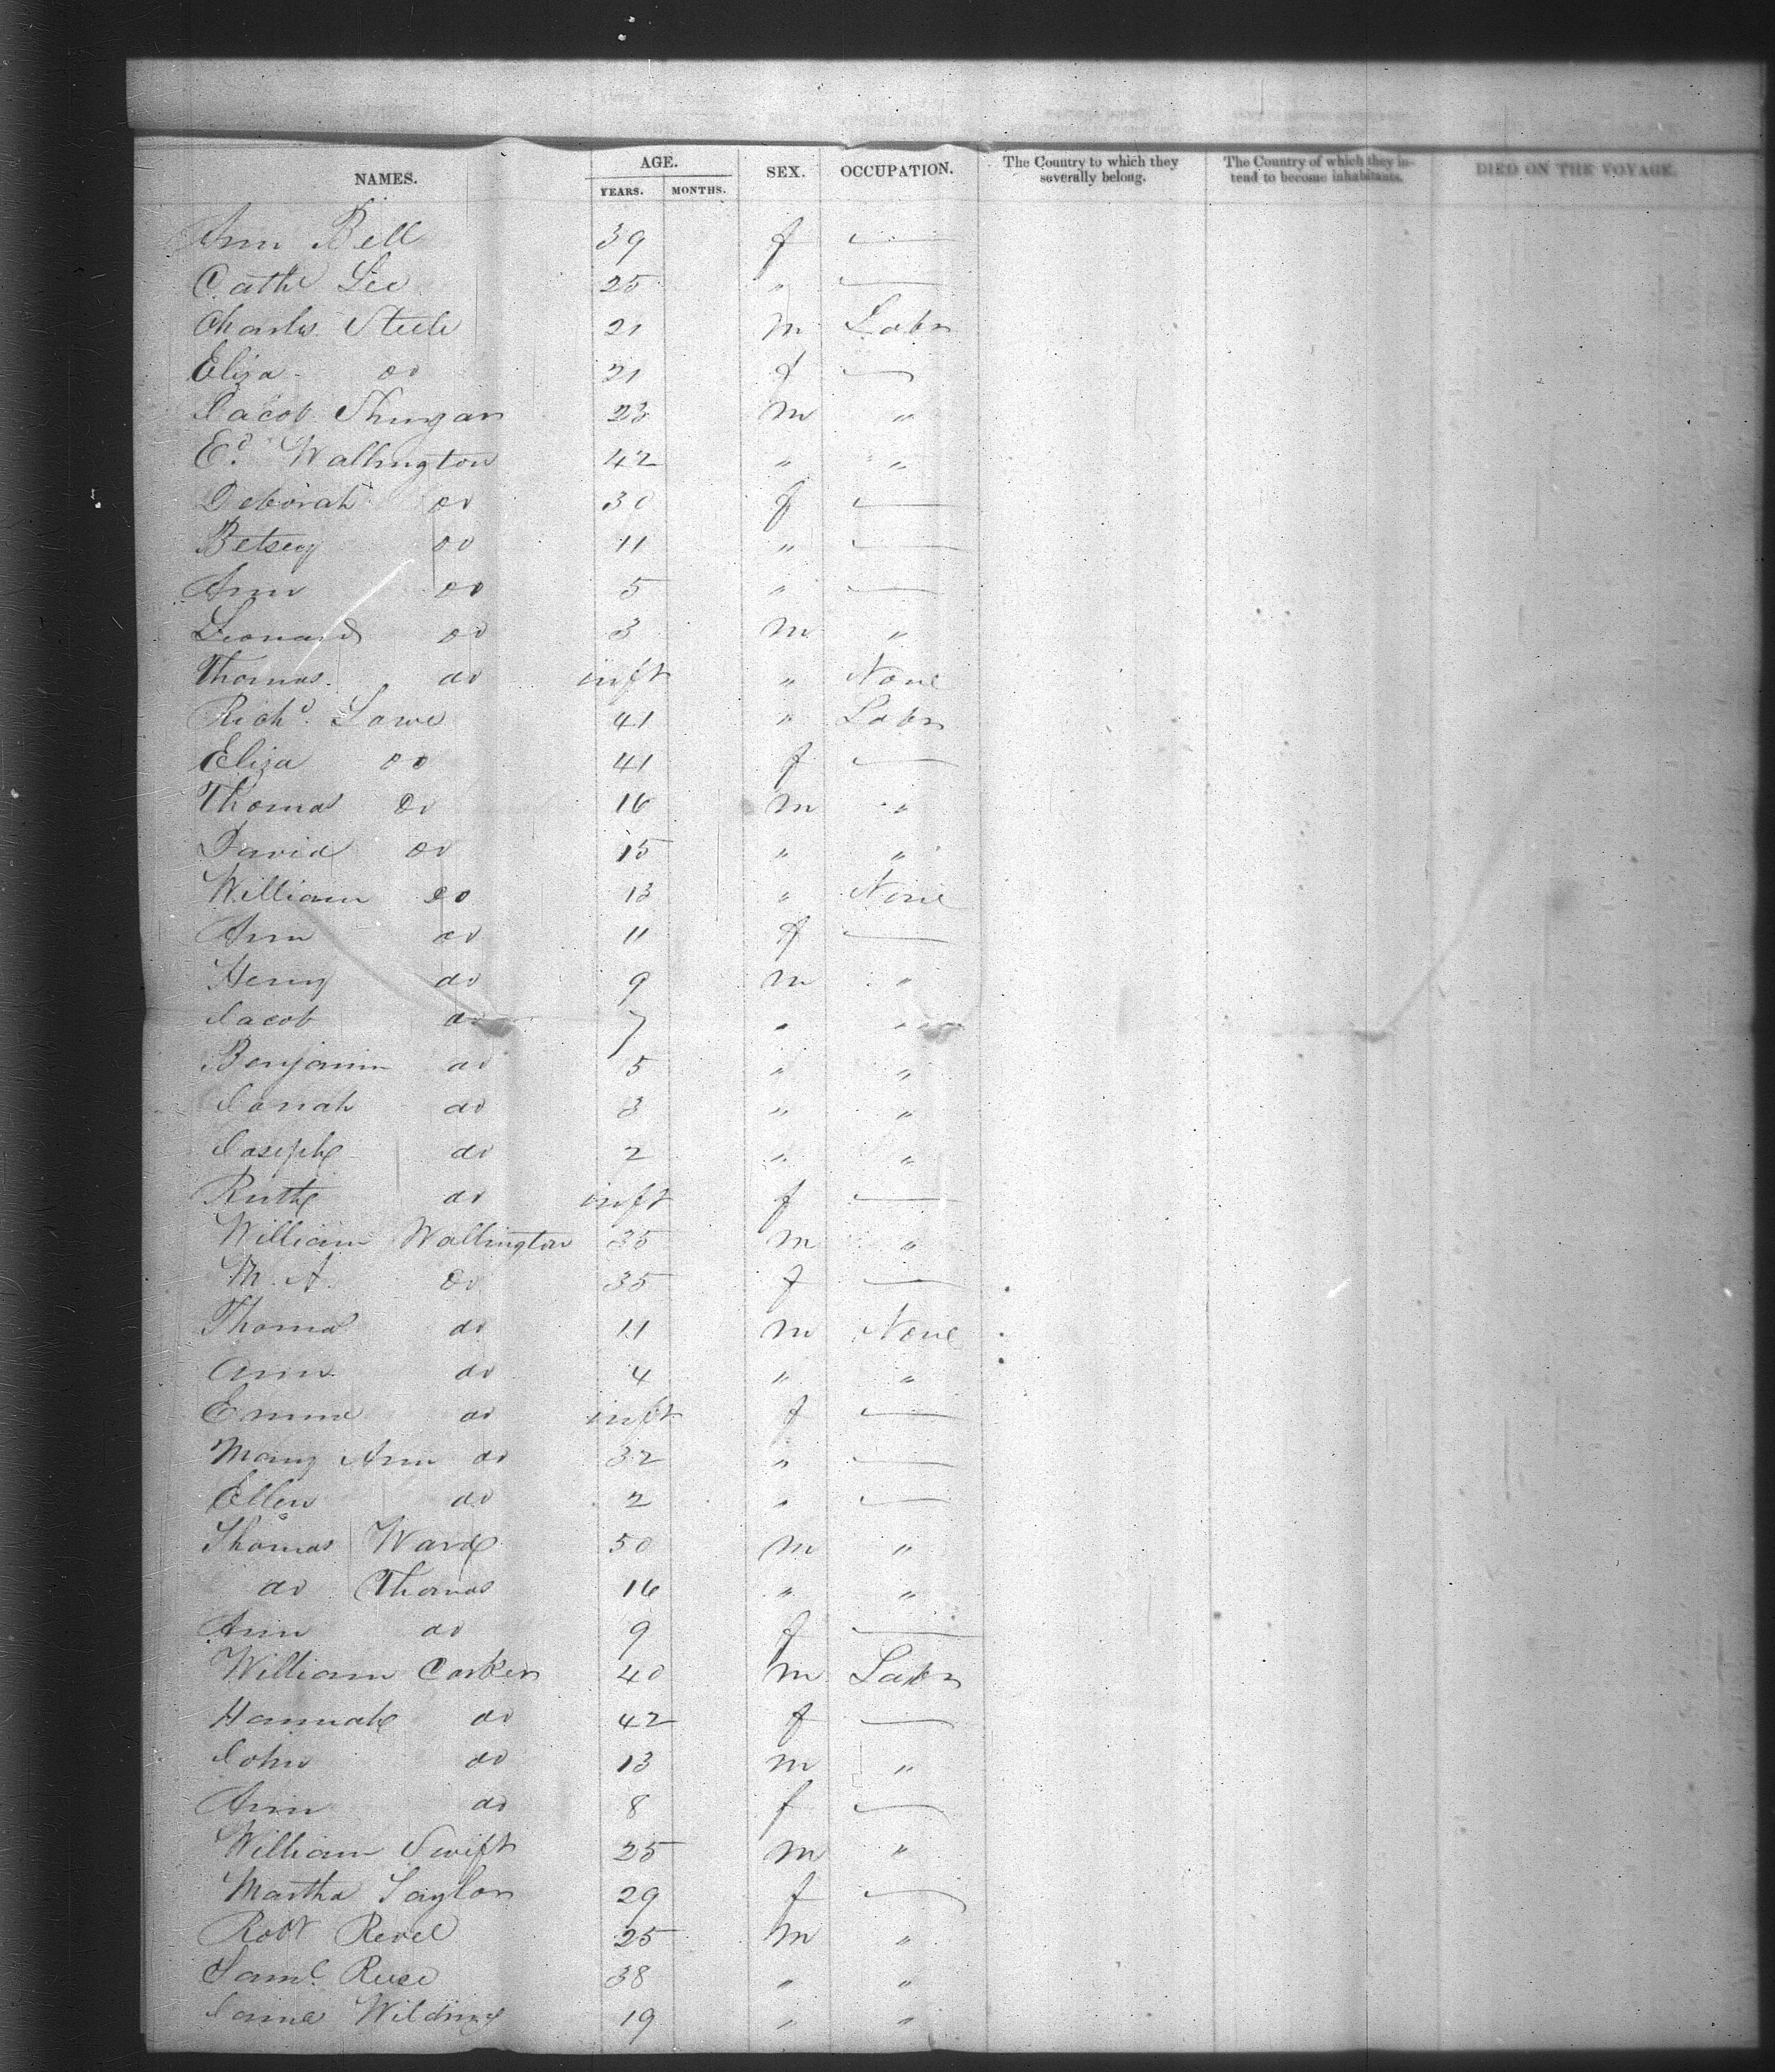 NAMES. AGE. YEARS. MONTHS. SEX. OCCUPATION. The Country to which they severally belong. The Country of which they intend to become inhabitants. DIED ON THE VOYAGE.
Ann Bell 39 f —
Cathe Lee 25 " —
Charles Steele 21 m Labr
Eliza do 21 f —
Jacob 23 m "
Ed. Wallington 42 " "
Deborah do 30 f —
Betsey do 11 " —
Ann do 5 " —
Leonard do 3 m "
Thomas do inft " None
Richd. Lowe 41 " Labr
Eliza do 41 f —
Thomas do 16 m "
David do 15 " "
William do 13 " None
Ann do 11 f —
Henry do 9 m "
Jacob do 7 " "
Benjamin do 5 " "
do 3 " "
Joseph do 2 " "
Ruth do inft f —
William Wallington 35 m "
M. A. do 35 f —
Thomas do 11 m None
Ann do 4 " "
Emma do inft f —
Mary Ann do 32 " —
Ellen do 2 " —
Thomas Ward 50 m "
do Thomas 16 " "
Ann do 9 f —
William 40 m Labr
Hannah do 42 f —
John do 13 m "
Ann do 8 f —
William Swift 25 m "
Martha Taylor 29 f —
Robt Revel 25 m "
Saml. 38 " "
Wilding 19 " "